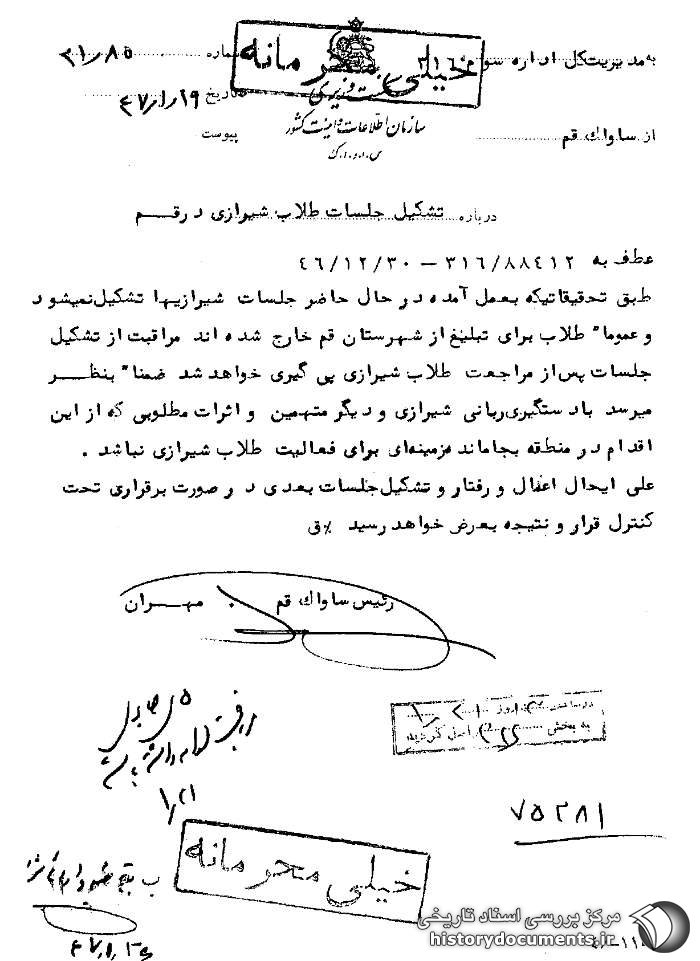 خیلی محرمانه
به مدیریت کل اداره سوم ۳۱۶
شماره ۲۱/۸۵
نخست وزیری
تاریخ ۴۷/۱/۱۹
سازمان اطلاعات و امنیت کشور
از ساواک قم
پیوست
س.ا.و.ا.ک
درباره تشکیل جلسات طلاب شیرازی در قم
عطف به ۳۱۶/۸۸۴۱۲ – ۴۶/۱۲/۳۰
طبق تحقیقاتیکه بعمل آمده در حال حاضر جلسات شیرازیها تشکیل نمیشود
و عموما" طلاب برای تبلیغ از شهرستان قم خارج شده اند مراقبت از تشکیل
جلسات پس از مراجعت طلاب شیرازی پی گیری خواهد شد ضمنا" بنظر
میرسد با دستگیری ربانی شیرازی و دیگر متهمین و اثرات مطلوبی که از این
اقدام در منطقه بجا مانده زمینه‌ای برای فعالیت طلاب شیرازی نباشد .
علی ایحال اعمال و رفتار و تشکیل جلسات بعدی در صورت برقراری تحت
کنترل قرار و نتیجه بعرض خواهد رسید ٪ق
رئیس ساواک قم . مهران
به بخش
۱/۲۱
۷۵۲۸۱
خیلی محرمانه
مرکز بررسی اسناد تاریخی
historydocuments.ir